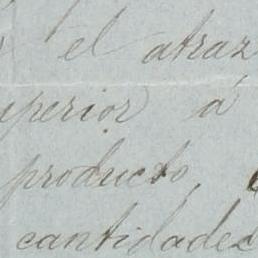 el atraz
uperior á
producto,
cantidades